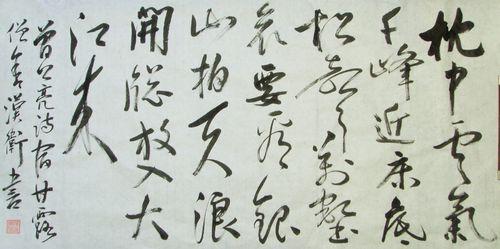 枕中雲氣
千峰近床底
松聲萬壑
哀要看銀
山拍天浪
開窓放入大
江来
曾公亮詩宿甘露
僧舍漢衛書